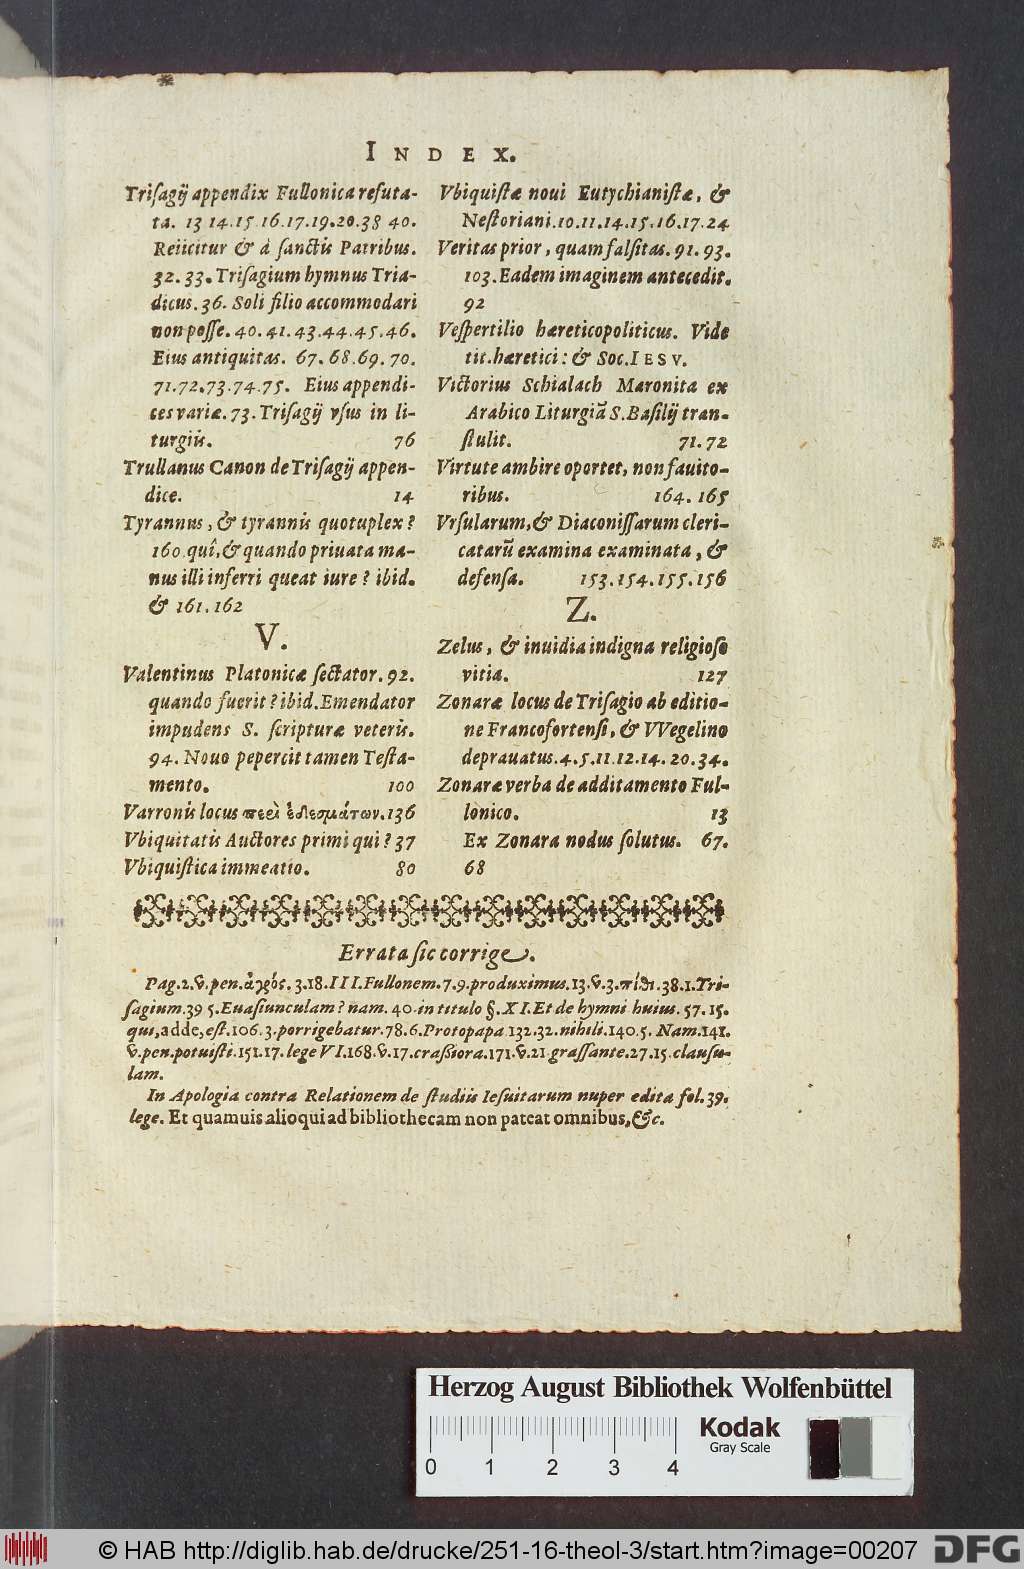 INDEX.
Triſagij appendix Fullonica refuta-
ta. 13 14.15 16.17.19.20.38 40.
Reiicitur & à ſanctis Patribus.
32.33. Triſagium hymnus Tria-
dicus. 36. Soli filio accommodari
non poſſe. 40. 41. 43. 44. 45. 46.
Eius antiquitas. 67. 68. 69. 70.
71.72.73.74.75. Eius appendi-
ces variæ. 73. Triſagij vſus in li-
turgiis. 76
Trullanus Canon de Triſagij appen-
dice. 14
Tyrannus, & tyrannis quotuplex?
160 quî, & quando priuata ma-
nus illi inferri queat iure? ibid.
& 161. 162
V.
Valentinus Platonicæ ſectator. 92.
quando fuerit? ibid. Emendator
impudens S. ſcripturæ veteris.
94. Nouo pepercit tamen Teſta-
mento. 100
Varronis locus περὶ ἐδεσμάτων. 136
Vbiquitatis Auctores primi qui? 37
Vbiquiſtica immeatio. 80
Vbiquiſtæ noui Eutychianiſtæ, &
Neſtoriani. 10.11.14.15.16.17.24
Veritas prior, quam falſitas. 91. 93.
103. Eadem imaginem antecedit.
92
Veſpertilio hæreticopoliticus. Vide
tit. hæretici: & Soc. IESV.
Victorius Schialach Maronita ex
Arabico Liturgiā S. Baſilij tran-
ſtulit. 71. 72
Virtute ambire oportet, non fauito-
ribus. 164. 165
Vrſularum, & Diaconiſſarum cleri-
catarū examina examinata, &
defenſa. 153. 154. 155. 156
Z.
Zelus, & inuidia indigna religioſo
vitia. 127
Zonaræ locus de Triſagio ab editio-
ne Francofortenſi, & VVegelino
deprauatus. 4.5.11.12.14. 20.34.
Zonaræ verba de additamento Ful-
lonico. 13
Ex Zonara nodus ſolutus. 67.
68
Errata ſic corrige.
Pag. 2. v. pen. ἀργός. 3.18. III. Fullonem. 7.9. produximus. 13. v. 3. πίθι. 38.1. Tri-
ſagium. 39 5. Euaſiunculam? nam. 40. in titulo §. XI. Et de hymni huius. 57. 15.
qui, adde, eſt. 106. 3. porrigebatur. 78. 6. Protopapa 132. 32. nihili. 140. 5. Nam. 141.
v. pen. potuiſti. 151. 17. lege VI. 168. v. 17. craßiora. 171. v. 21 graſſante. 27. 15 clauſu-
lam.
In Apologia contra Relationem de ſtudiis Ieſuitarum nuper edita fol. 39.
lege. Et quamuis alioqui ad bibliothecam non pateat omnibus, &c.
Herzog August Bibliothek Wolfenbüttel
Kodak
Gray Scale
0 1 2 3 4
© HAB http://diglib.hab.de/drucke/251-16-theol-3/start.htm?image=00207
DFG